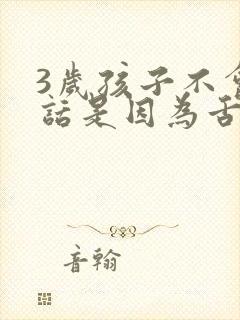 3歲孩子不會
話是因為舌
音翰